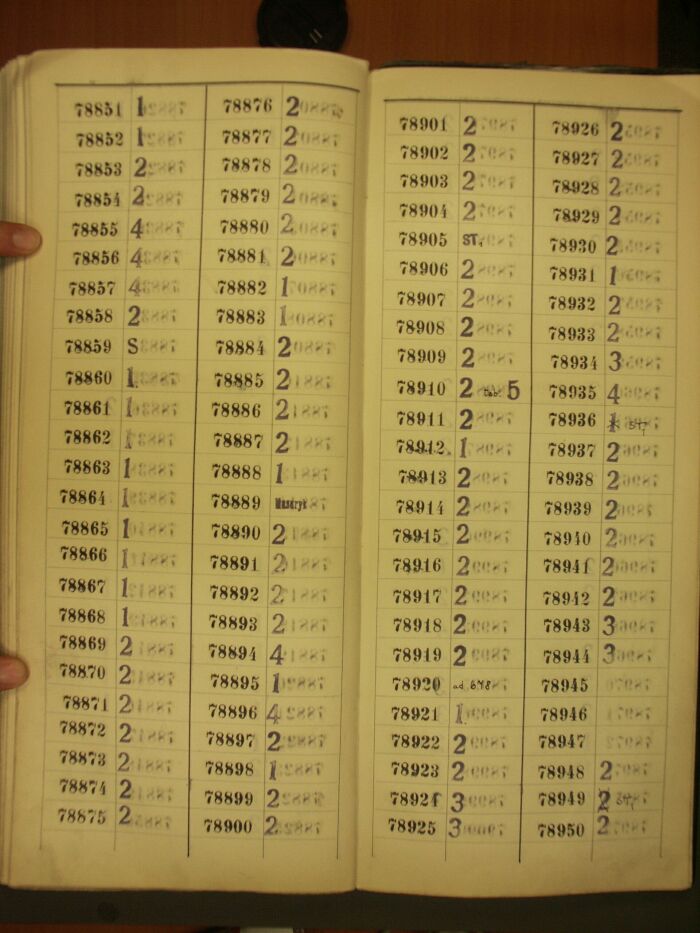 78851 1
78852 1
78853 2
78854 2
78855 4
78856 4
78857 4
78858 2
78859 S
78860 1
78861 1
78862 1
78863 1
78864 1
78865 1
78866 1
78867 1
78868 1
78869 2
78870 2
78871 2
78872 2
78873 2
78874 2
78875 2
78876 2
78877 2
78878 2
78879 2
78880 2
78881 2
78882 1
78883 1
78884 2
78885 2
78886 2
78887 2
78888 1
78889
78890 2
78891 2
78892 2
78893 2
78894 4
78895 1
78896 4
78897 2
78898 1
78899 2
78900 2
78901 2
78902 2
78903 2
78904 2
78905 ST.
78906 2
78907 2
78908 2
78909 2
78910 2 5
78911 2
78912 1
78913 2
78914 2
78915 2
78916 2
78917 2
78918 2
78919 2
78920 od. 648
78921 1
78922 2
78923 2
78924 3
78925 3
78926 2
78927 2
78928 2
78929 2
78930 2
78931 1
78932 2
78933 2
78934 3
78935 4
78936 1
78937 2
78938 2
78939 2
78940 2
78941 2
78942 2
78943 3
78944 3
78945
78946
78947
78948 2
78949 2
78950 2